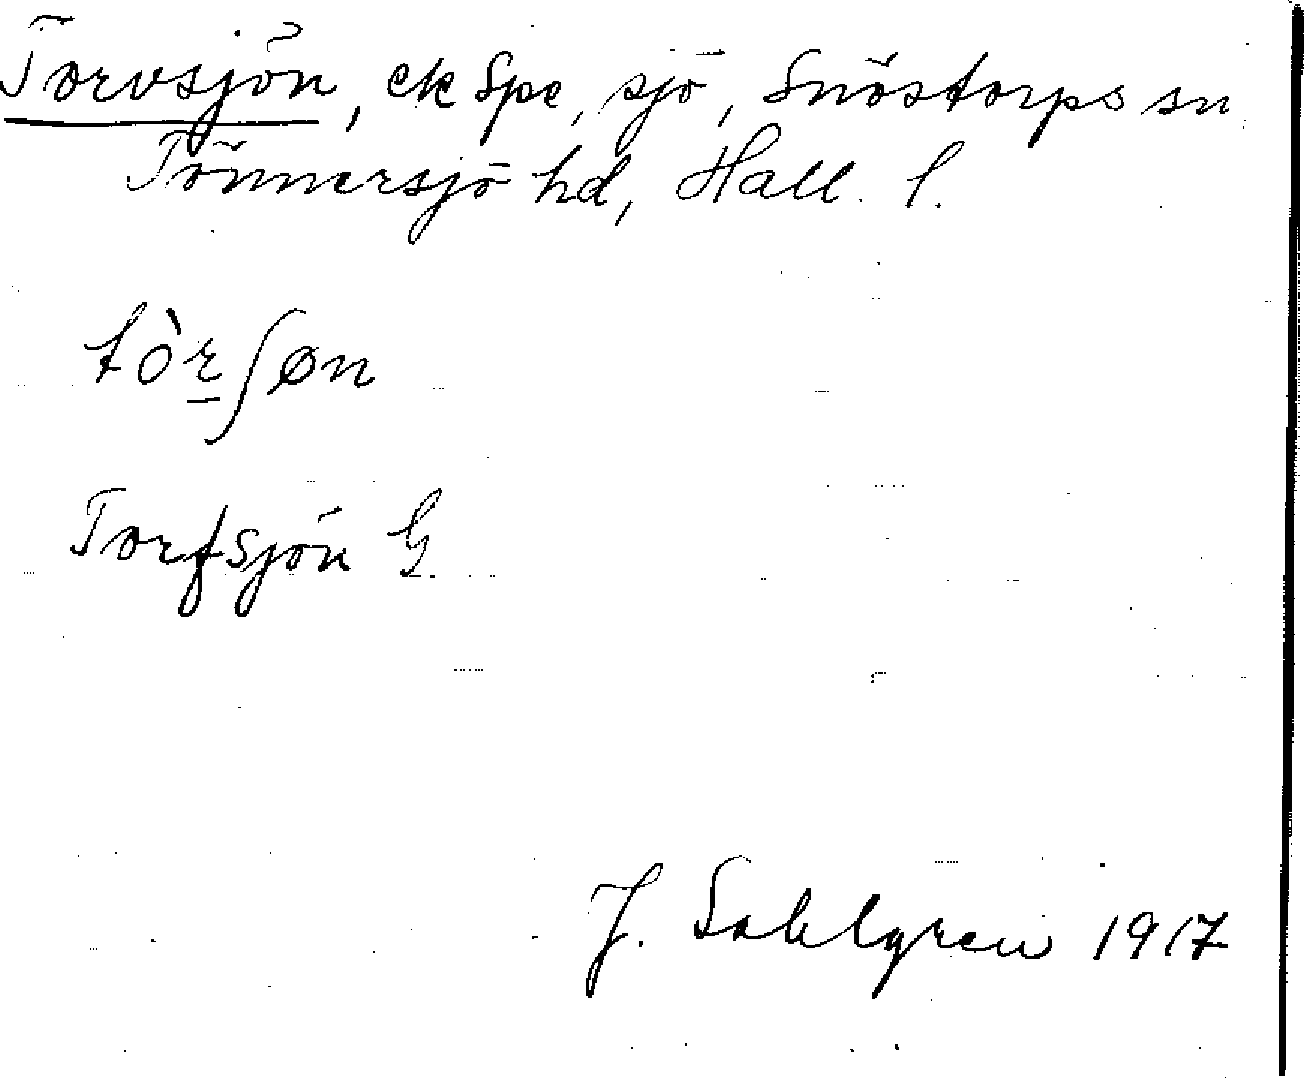 Torvsjön, ek Spe, sjö, Snöstorps sn
Tönnersjö hd, Hall. l.
tòr̠ʃøn
Torfsjön G.
J. Sahlgren 1917